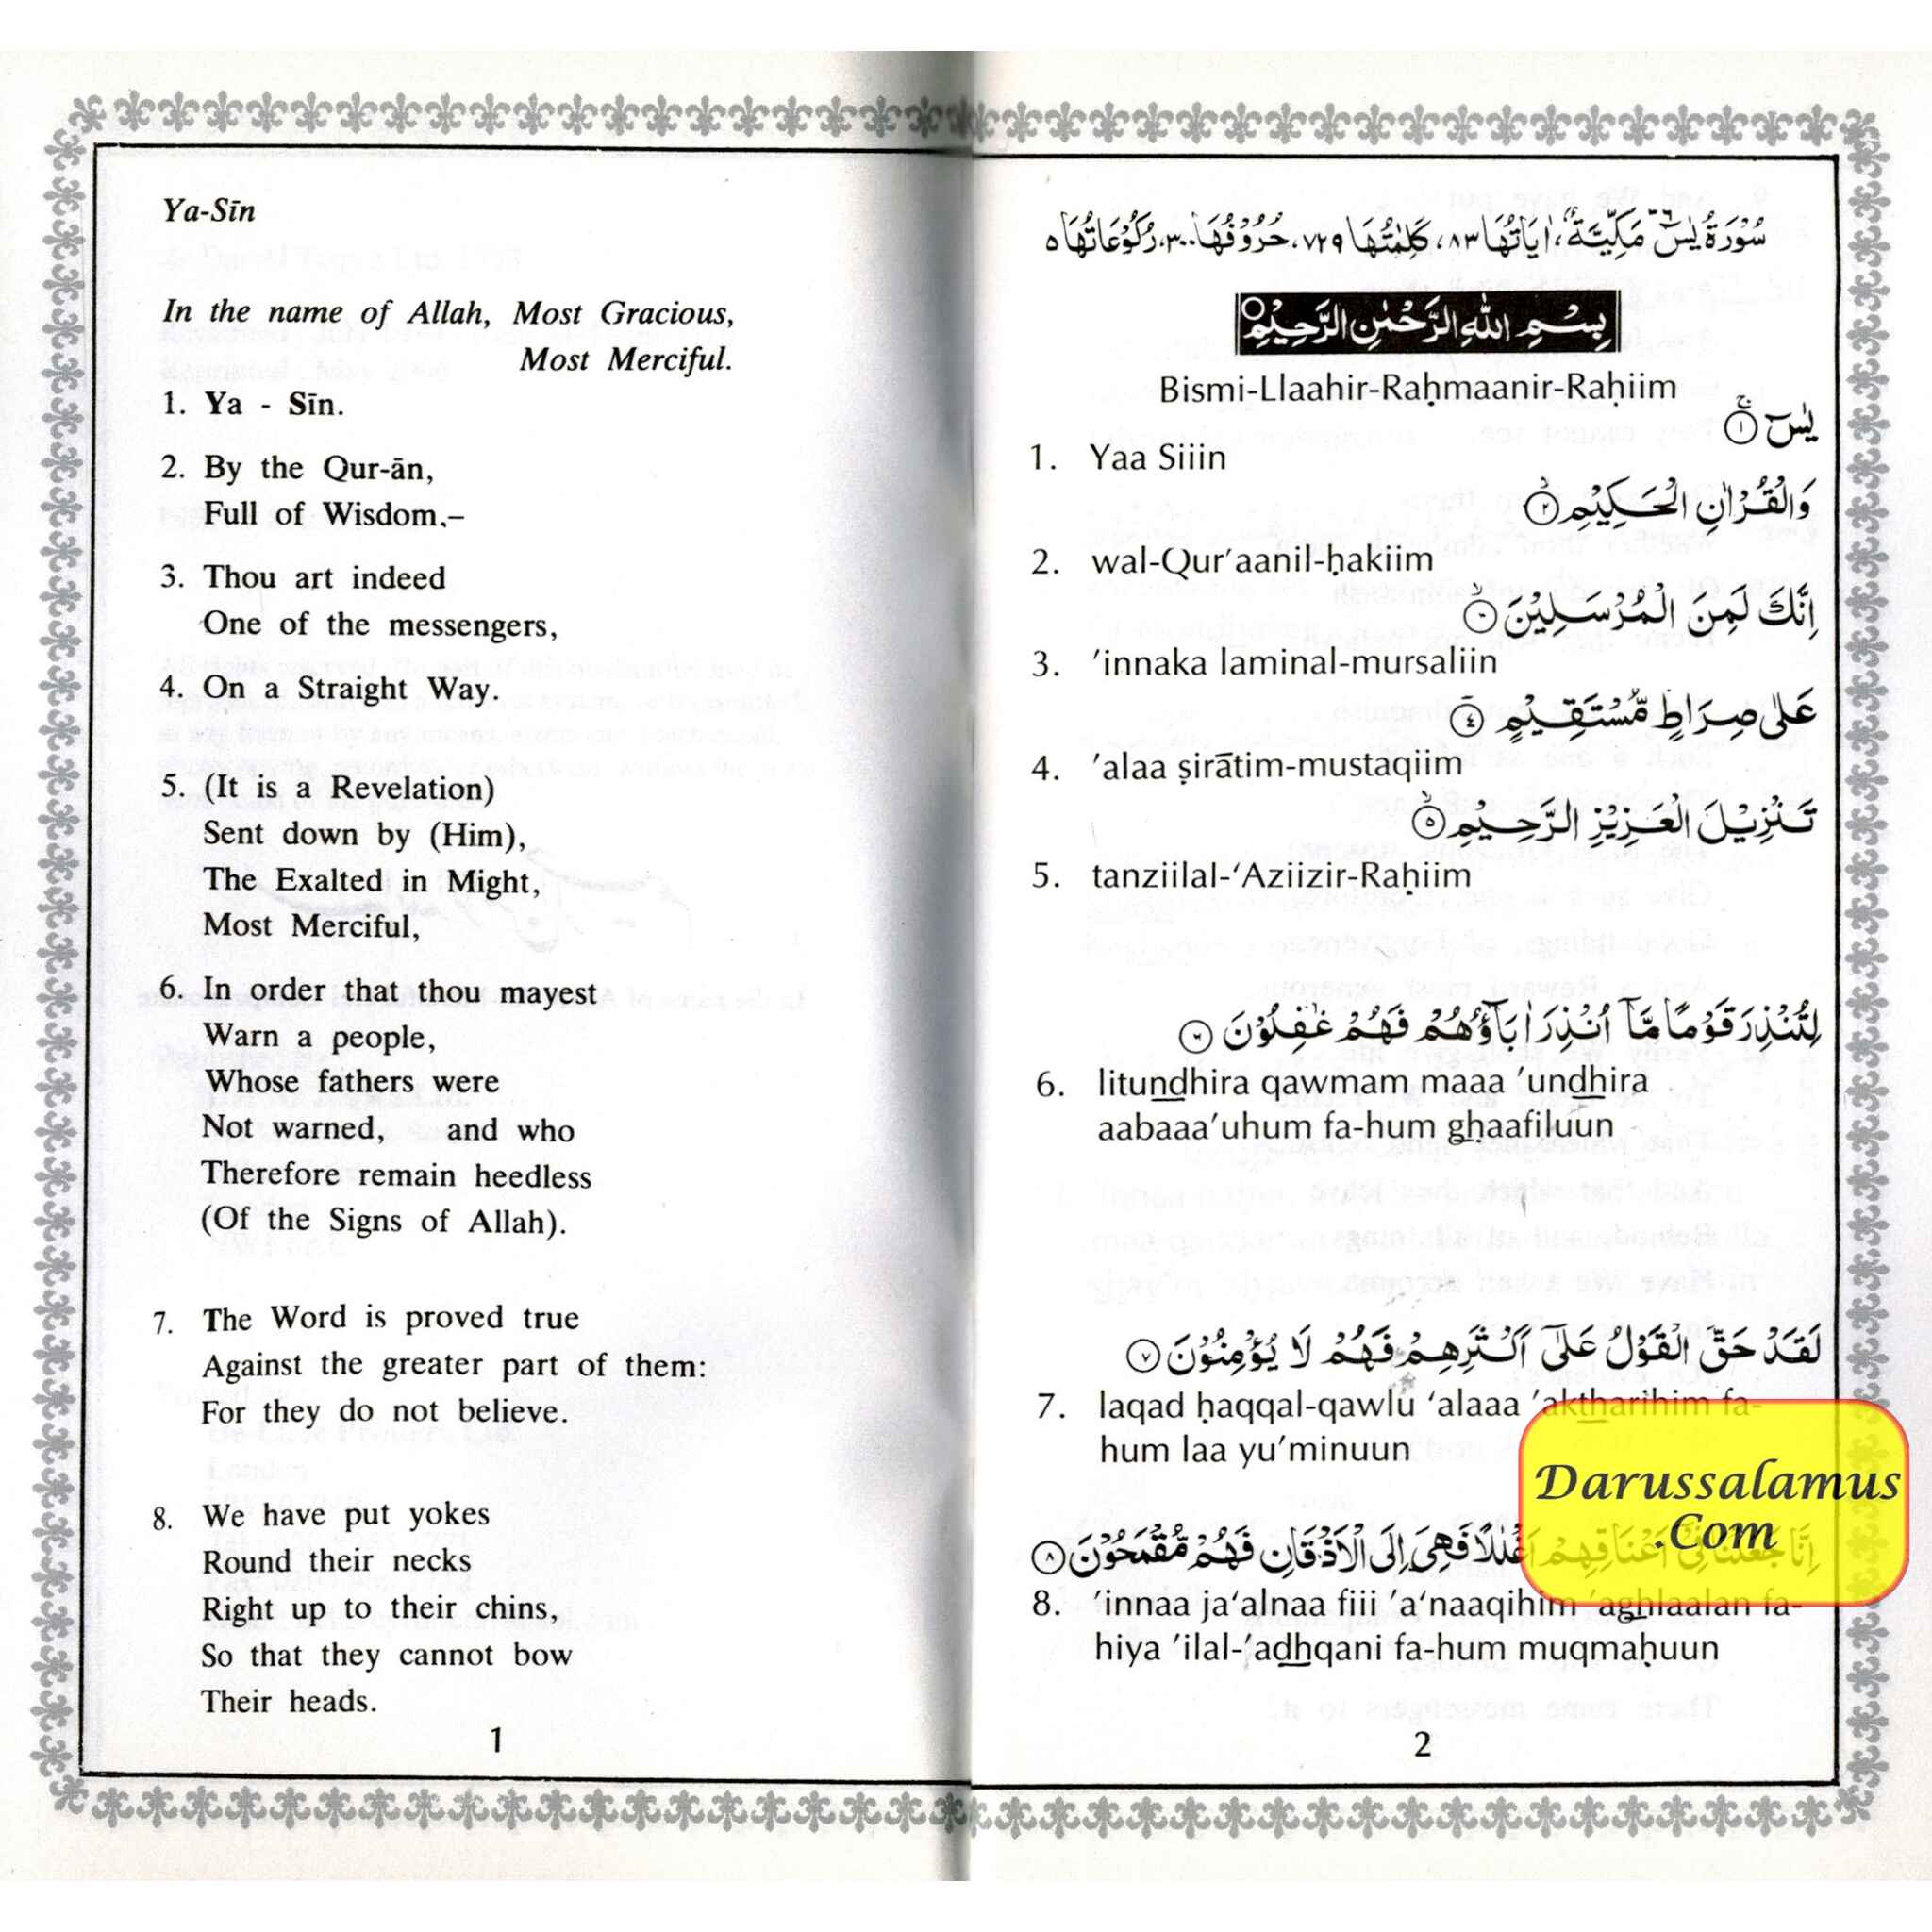 Ya-Sīn
In the name of Allah, Most Gracious,
Most Merciful.
1. Ya - Sīn.
2. By the Qur-ān,
Full of Wisdom,–
3. Thou art indeed
One of the messengers,
4. On a Straight Way.
5. (It is a Revelation)
Sent down by (Him),
The Exalted in Might,
Most Merciful,
6. In order that thou mayest
Warn a people,
Whose fathers were
Not warned, and who
Therefore remain heedless
(Of the Signs of Allah).
7. The Word is proved true
Against the greater part of them:
For they do not believe.
8. We have put yokes
Round their necks
Right up to their chins,
So that they cannot bow
Their heads.
1
سُوْرَةُ يٰسٓ مَكِّيَّةٌ، اٰيَاتُهَا ٨٣، كَلِمٰتُهَا ٧٢٩، حُرُوْفُهَا ٣٠٠٠، رُكُوْعَاتُهَا ٥
بِسْمِ اللهِ الرَّحْمٰنِ الرَّحِيْمِ
Bismi-Llaahir-Raḥmaanir-Raḥiim
يٰسٓ ۚ ١
1. Yaa Siiin
وَالْقُرْاٰنِ الْحَكِيْمِ ۙ ٢
2. wal-Qur’aanil-ḥakiim
اِنَّكَ لَمِنَ الْمُرْسَلِيْنَ ۙ
3. ’innaka laminal-mursaliin
عَلٰى صِرَاطٍ مُّسْتَقِيْمٍ ٤
4. ’alaa ṣirātim-mustaqiim
تَنْزِيْلَ الْعَزِيْزِ الرَّحِيْمِ ۙ ٥
5. tanziilal-‘Aziizir-Raḥiim
لِتُنْذِرَ قَوْمًا مَّآ اُنْذِرَ اٰبَآؤُهُمْ فَهُمْ غٰفِلُوْنَ ٦
6. litundhira qawmam maaa ’undhira
aabaaa’uhum fa-hum ghaafiluun
لَقَدْ حَقَّ الْقَوْلُ عَلٰٓى اَكْثَرِهِمْ فَهُمْ لَا يُؤْمِنُوْنَ ٧
7. laqad ḥaqqal-qawlu ‘alaaa ’aktharihim fa-
hum laa yu’minuun
Darussalamus
.Com
اِنَّا جَعَلْنَا فِيْٓ اَعْنَاقِهِمْ اَغْلٰلًا فَهِيَ اِلَى الْاَذْقَانِ فَهُمْ مُّقْمَحُوْنَ ٨
8. ’innaa ja‘alnaa fiii ’a‘naaqihim ’aghlaalan fa-
hiya ’ilal-’adhqani fa-hum muqmaḥuun
2